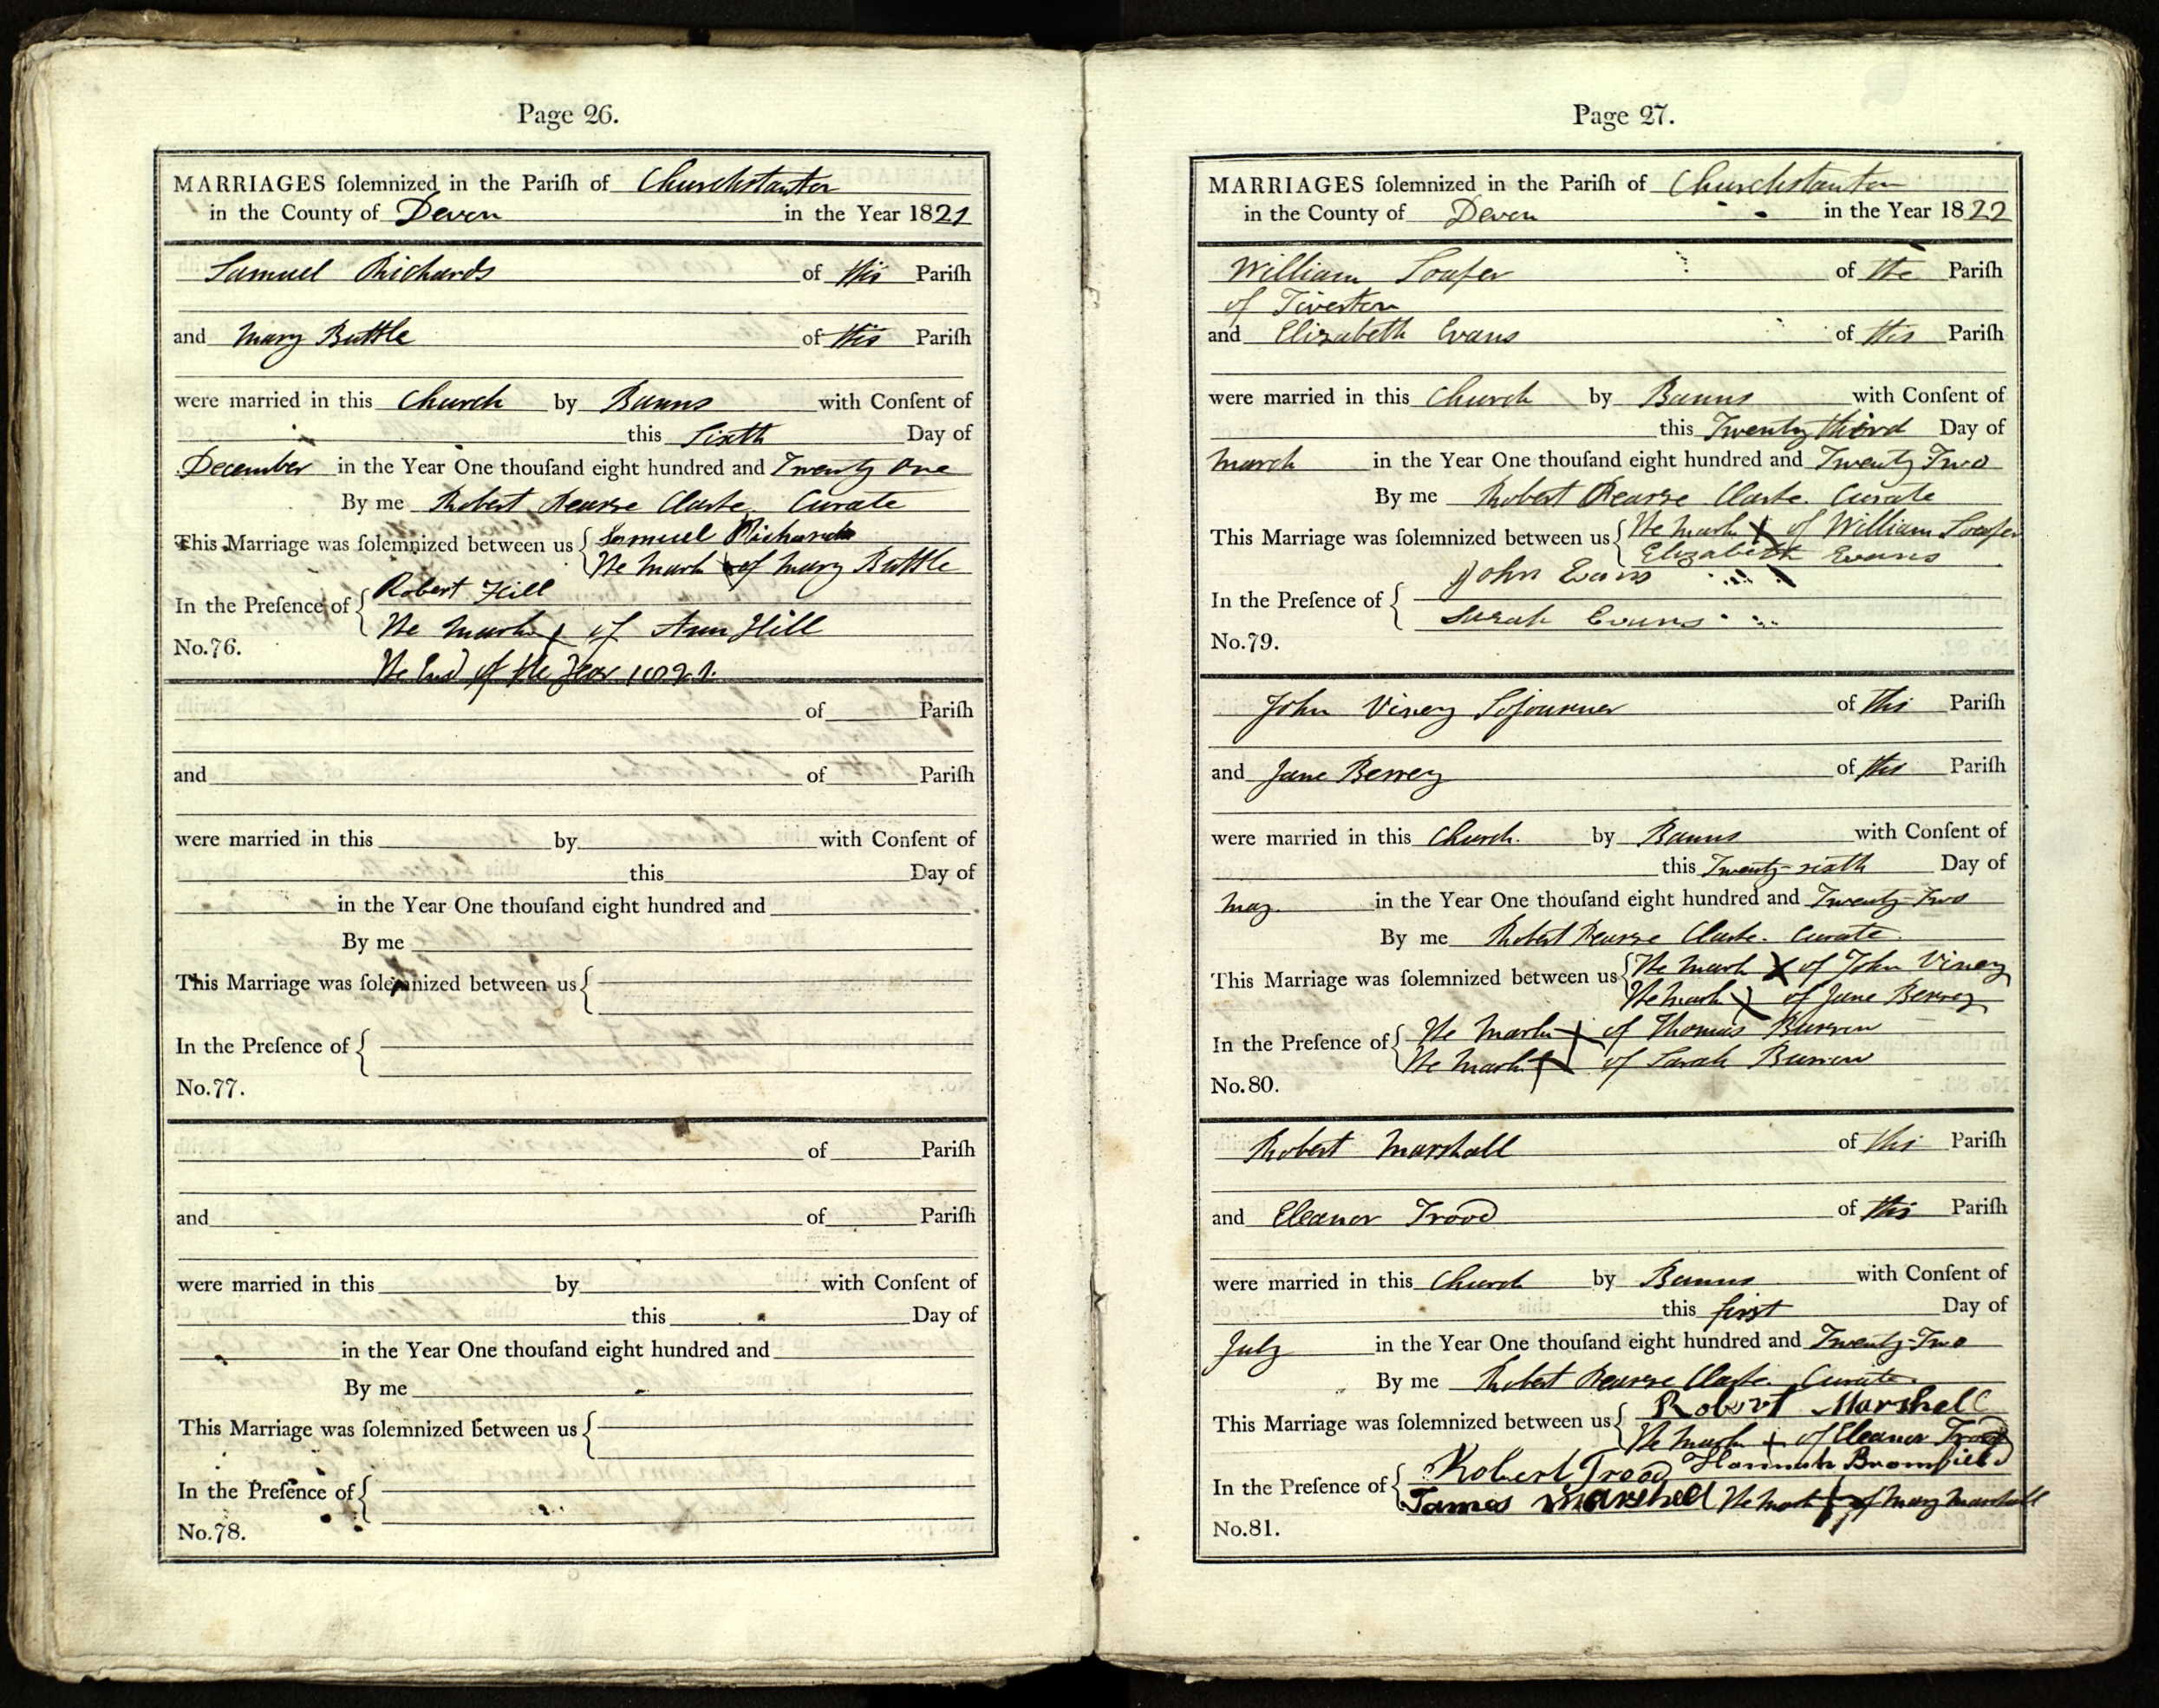 Page 26.
MARRIAGES ſolemnized in the Pariſh of Churchstanton
in the County of Devon in the Year 1821
Samuel Richards of this Pariſh
and Mary Buttle of this Pariſh
were married in this Church by Banns with Conſent of
this Sixth Day of
December in the Year One thouſand eight hundred and Twenty One
By me Robert Pearse Clarke Curate
This Marriage was ſolemnized between us { Samuel Richards
The Mark x of Mary Buttle
In the Preſence of { Robert Hill
The Mark x of Ann Hill
No.76.
The End of the Year 1821.
of Pariſh
and of Pariſh
were married in this by with Conſent of
this Day of
in the Year One thouſand eight hundred and
By me
This Marriage was ſolemnized between us {
In the Preſence of {
No.77.
of Pariſh
and of Pariſh
were married in this by with Conſent of
this Day of
in the Year One thouſand eight hundred and
By me
This Marriage was ſolemnized between us {
In the Preſence of {
No.78.
Page 27.
MARRIAGES ſolemnized in the Pariſh of Churchstanton
in the County of Devon in the Year 1822
William of the Pariſh
of Tiverton
and Elizabeth Evans of this Pariſh
were married in this Church by Banns with Conſent of
this Twenty third Day of
March in the Year One thouſand eight hundred and Twenty Two
By me Robert Pearse Clarke. Curate
This Marriage was ſolemnized between us { The Mark X of William
Elizabeth Evans
In the Preſence of { John Evans
Sarah Evans
No.79.
John Viney Sojourner of this Pariſh
and Jane Berrey of this Pariſh
were married in this Church. by Banns with Conſent of
this Twenty-sixth Day of
May. in the Year One thouſand eight hundred and Twenty-Two
By me Robert Pearse Clarke. Curate.
This Marriage was ſolemnized between us { The Mark X of John Viney
The Mark X of Jane Berrey
In the Preſence of { The Mark X of Thomas
The Mark X of Sarah
No.80.
Robert Marshall of this Pariſh
and Eleanor Trood of this Pariſh
were married in this Church by Banns with Conſent of
this first Day of
July in the Year One thouſand eight hundred and Twenty-Two
By me Robert Pearse Clarke Curate.
This Marriage was ſolemnized between us { Robert Marshell
The Mark x of Eleanor Trood
In the Preſence of { Robert Trood Hannah Bromfield
James Marshell The Mark X of Mary Marshall
No.81.